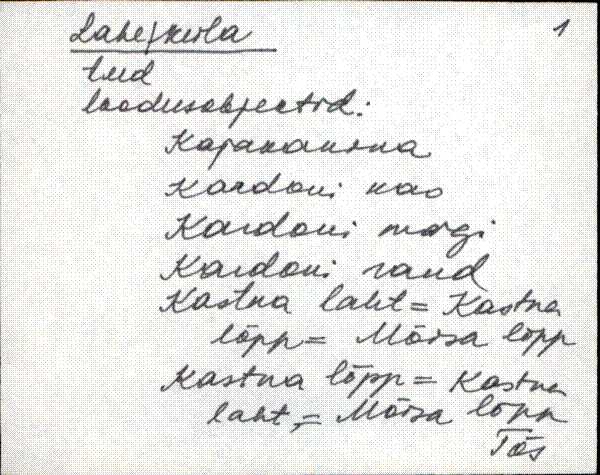 Lahe/küla 1
tud
loodusobjectid:
Kajakanina
Kardoni kao
Kardoni mägi
Kardoni rand
Kastna laht = Kastna
lõpp = Mõisa lõpp
Kastna lõpp = Kastna
laht, = Mõisa lõpp
Tõs